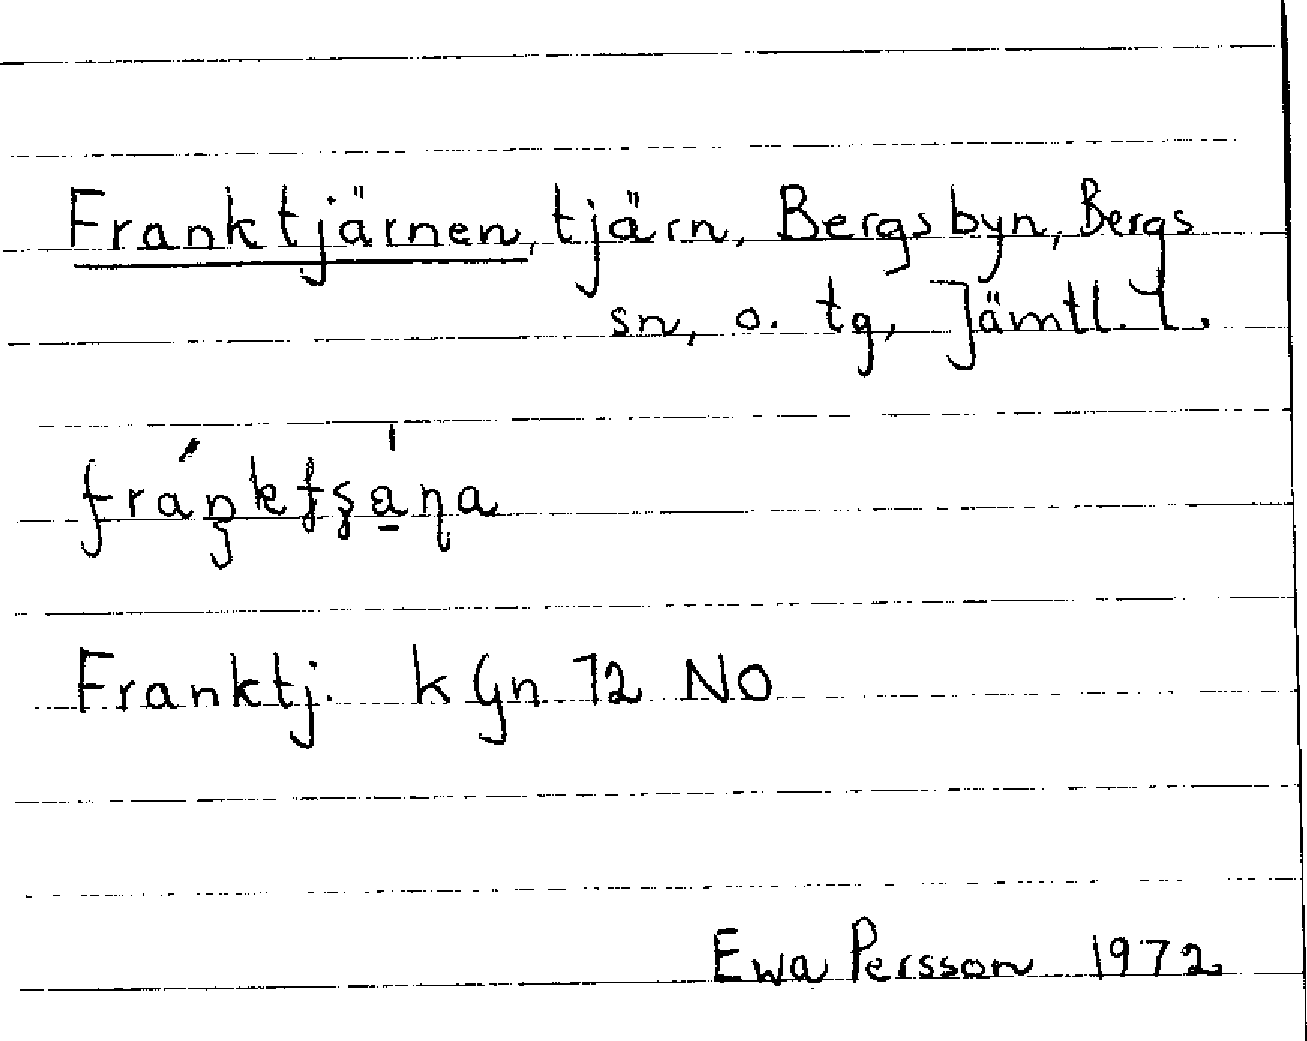 Franktjärnen, tjärn, Bergsbyn, Bergs
sn, o. tg, Jämtl. l.
Franktj. k Gn 72 NO
Ewa Persson 1972